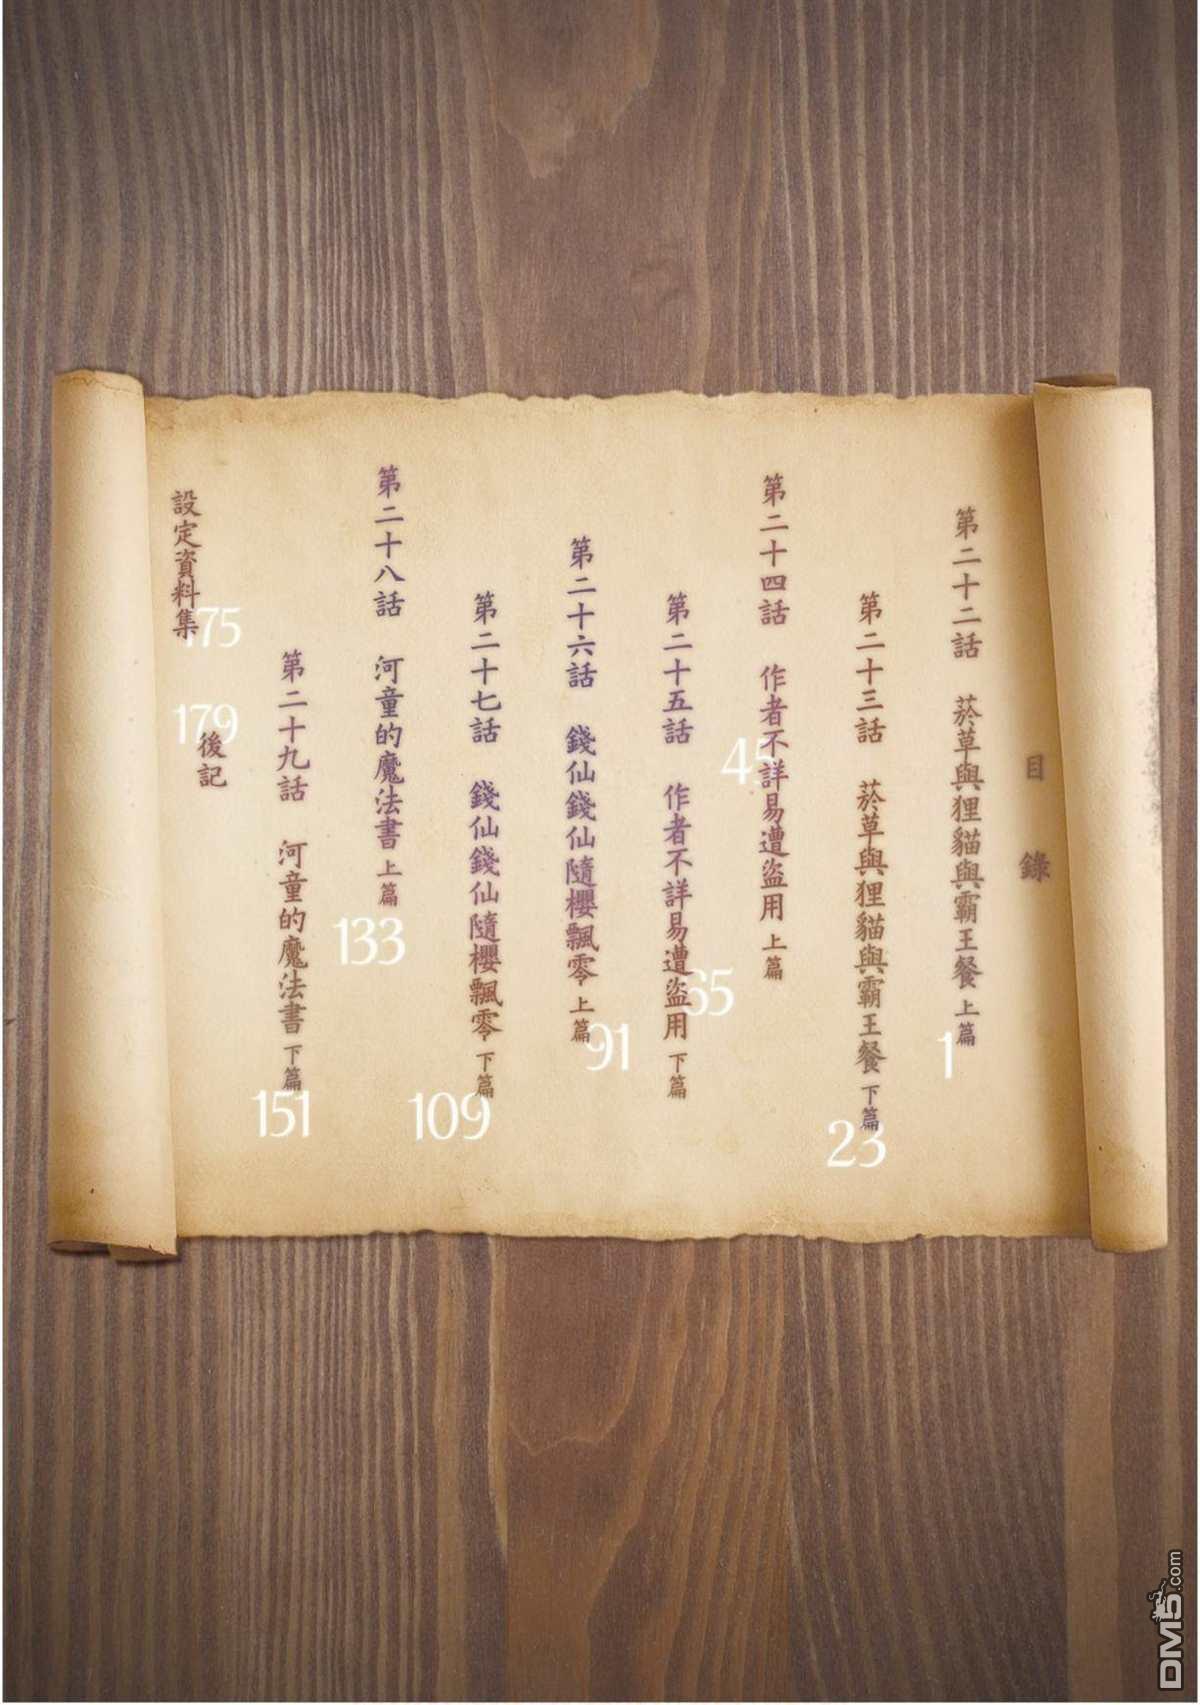 目錄
第二十二話 菸草與狸貓與霸王餐 上篇
1
第二十三話 菸草與狸貓與霸王餐 下篇
23
第二十四話 作者不詳易遭盜用 上篇
45
第二十五話 作者不詳易遭盜用 下篇
65
第二十六話 錢仙錢仙隨櫻飄零 上篇
91
第二十七話 錢仙錢仙隨櫻飄零 下篇
109
第二十八話 河童的魔法書 上篇
133
第二十九話 河童的魔法書 下篇
151
設定資料集
175
後記
179
DM5.com